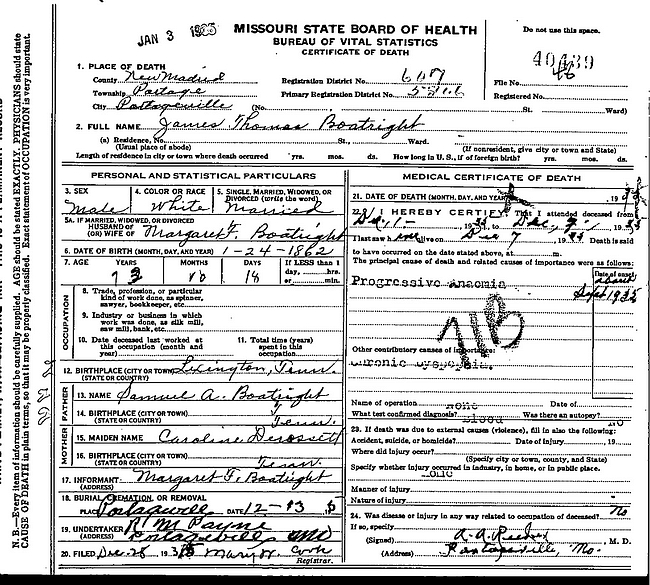 N. B.—Every item of information should be carefully supplied. AGE should be stated EXACTLY. PHYSICIANS should state
CAUSE OF DEATH in plain terms, so that it may be properly classified. Exact statement of OCCUPATION is very important.
JAN 3
MISSOURI STATE BOARD OF HEALTH
BUREAU OF VITAL STATISTICS
CERTIFICATE OF DEATH
Do not use this space.
1. PLACE OF DEATH
County New Madrid Registration District No. 607 File No.
Township Portage Primary Registration District No. Registered No. 46
City Portageville (No. St. Ward)
2. FULL NAME James Thomas Boatright
(a) Residence, No. St., Ward.
(Usual place of abode) (If nonresident, give city or town and State)
Length of residence in city or town where death occurred yrs. mos. ds. How long in U. S., if of foreign birth? yrs. mos. ds.
PERSONAL AND STATISTICAL PARTICULARS
3. SEX Male
4. COLOR OR RACE White
5. SINGLE, MARRIED, WIDOWED, OR DIVORCED (write the word) Married
5A. IF MARRIED, WIDOWED, OR DIVORCED
HUSBAND OF
(OR) WIFE OF Margaret F. Boatright
6. DATE OF BIRTH (MONTH, DAY, AND YEAR) 1-24-1862
7. AGE YEARS MONTHS DAYS If LESS than 1
73 10 18 day, hrs.
or min.
OCCUPATION
8. Trade, profession, or particular
kind of work done, as spinner,
sawyer, bookkeeper, etc.
9. Industry or business in which
work was done, as silk mill,
saw mill, bank, etc.
10. Date deceased last worked at
this occupation (month and
year)
11. Total time (years)
spent in this
occupation
12. BIRTHPLACE (CITY OR TOWN) Lexington, Tenn.
(STATE OR COUNTRY)
FATHER
13. NAME Samuel A. Boatright
14. BIRTHPLACE (CITY OR TOWN)
(STATE OR COUNTRY) Tenn.
MOTHER
15. MAIDEN NAME Caroline Derossett
16. BIRTHPLACE (CITY OR TOWN)
(STATE OR COUNTRY) Tenn.
17. INFORMANT Margaret F. Boatright
(ADDRESS)
18. BURIAL, CREMATION, OR REMOVAL
PLACE DATE 12-13
19. UNDERTAKER R M Payne
(ADDRESS) Portageville Mo
20. FILED Dec. 28 Cook
Registrar.
MEDICAL CERTIFICATE OF DEATH
21. DATE OF DEATH (MONTH, DAY, AND YEAR)
22. I HEREBY CERTIFY, That I attended deceased from
to Dec. 9
I last saw him alive on Dec 7 Death is said
to have occurred on the date stated above, at m.
The principal cause of death and related causes of importance were as follows:
Date of onset
Progressive Anaemia about
Sept 1935
71B
Other contributory causes of importance:
Name of operation None Date of
What test confirmed diagnosis? Blood Was there an autopsy? No
23. If death was due to external causes (violence), fill in also the following:
Accident, suicide, or homicide? Date of injury 19
Where did injury occur?
(Specify city or town, county, and State)
Specify whether injury occurred in industry, in home, or in public place.
Manner of injury
Nature of injury
24. Was disease or injury in any way related to occupation of deceased? No
If so, specify
(Signed) , M. D.
(Address) Portageville, Mo.